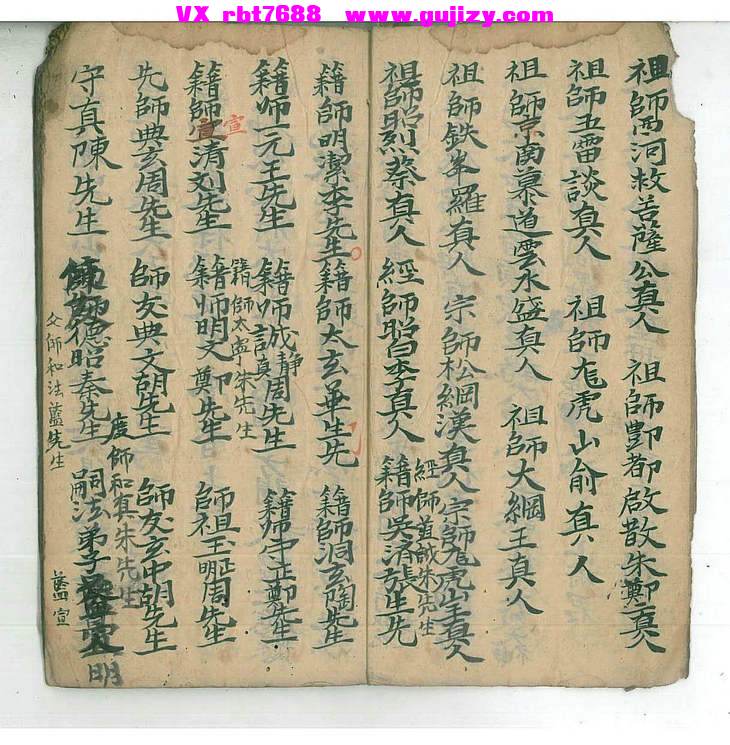 VX rbt7688 www.gujizy.com
祖師西河救苦薩公真人 祖師酆都啟散朱鄭真人
祖師五雷談真人 祖師龙虎山俞真人
祖師京南慕道雲水盛真人 祖師大綱王真人
祖師鉄峯羅真人 宗師松綱漢真人宗師龙虎山王真人
祖師昭烈蔡真人 經師昭日李真人 籍師吳濟張先生
經師道誠朱先生
籍師明潔李先生 籍師太玄華先生 籍師洞玄陶先生
籍師一元王先生 籍師誠靜周先生 籍師守正鄭先生
籍師太寧朱先生
籍師宣清刘先生 籍師明文鄭先生 師祖玉明周先生
宣
先師典玄周先生 師友典文胡先生 師友玄中胡先生
度師和真朱先生
守真陳先生 德昭秦先生 嗣法弟子 明
父師和法藍先生
藍宣